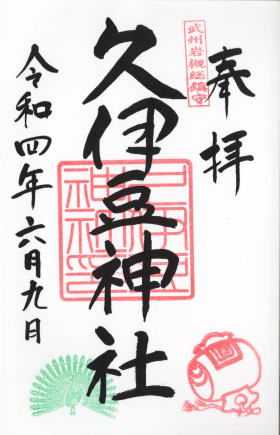 奉拝
武州岩槻総鎮守
久伊豆神社
令和四年六月九日